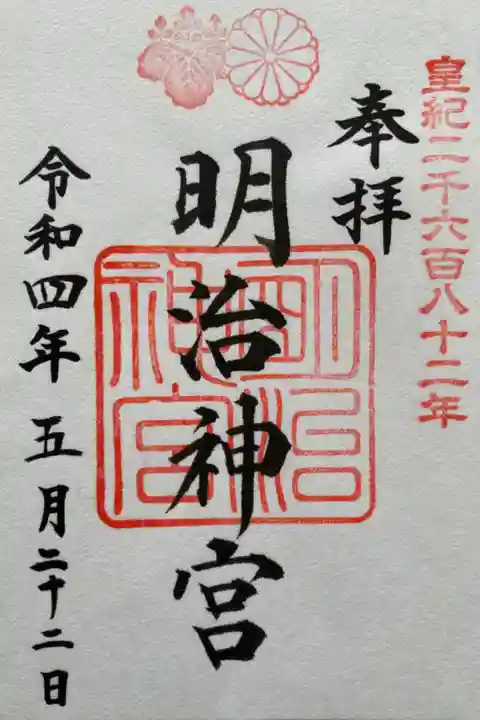 皇紀二千六百八十二年
奉拝
明治神宮
明治神宮
令和四年 五月二十二日